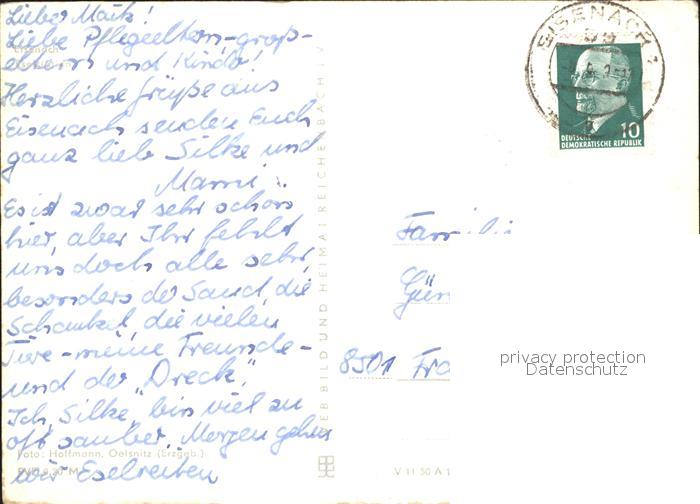 Lieber Maik!
Liebe Pflegeeltern-groß-
eltern und Kinder!
Herzliche Grüße aus
Eisenach senden Euch
ganz lieb Silke und
Mami.
Es ist zwar sehr schön
hier, aber Ihr fehlt
uns doch alle sehr,
besonders der Sand, die
Schaukel, die vielen
Tiere - meine Freunde -
und der „Dreck".
Ich, Silke, bin viel zu
oft sauber. Morgen gehn
wir Eselreiten
Foto: Hoffmann, Oelsnitz (Erzgeb.)
VEB BILD UND HEIMAT REICHENBACH I. V.
V 11 50 A 1
EISENACH 1
10
DEUTSCHE
DEMOKRATISCHE REPUBLIK
Familie
Gün
8501 Fra
privacy protection
Datenschutz